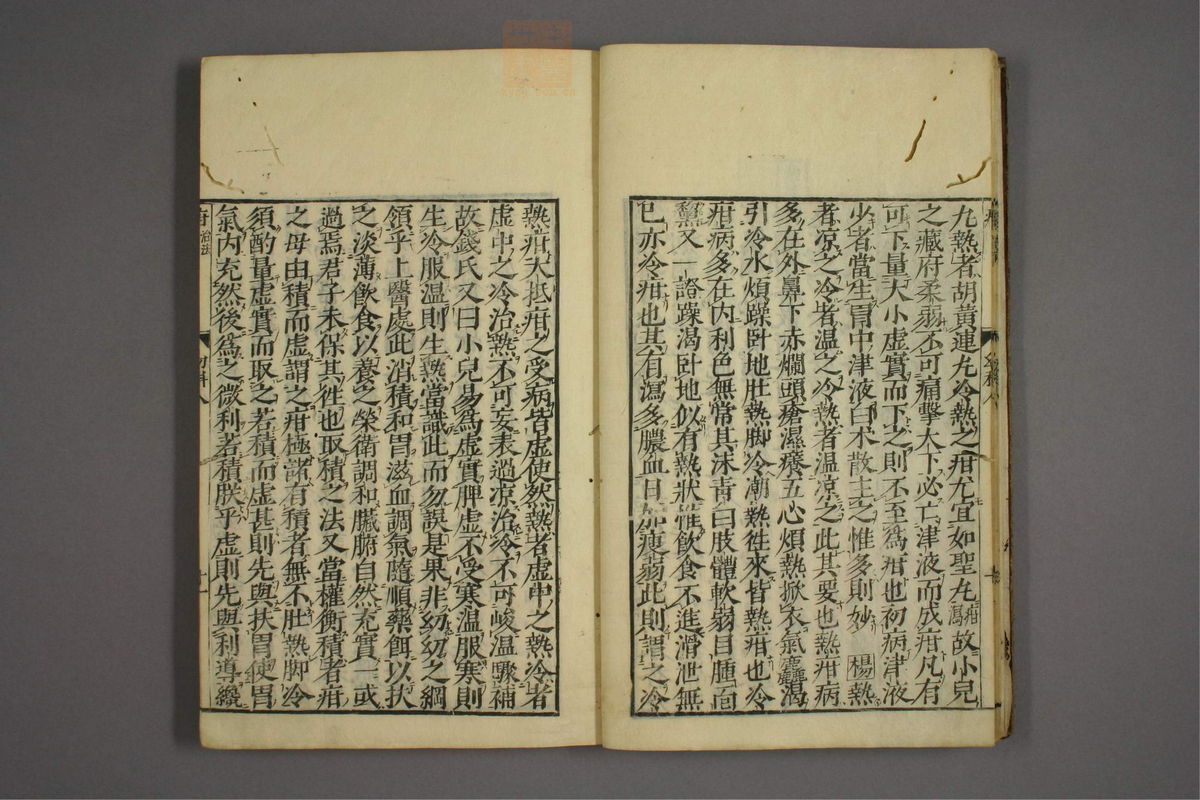 九熱者胡黃連丸冷熱之疳尤宜如聖丸疳瀉故小兒
之藏府柔弱不可痛擊大下必亡津液而成疳凡有
可下量大小虛實而下之則不至爲疳也初病津液
少者當生胃中津液白朮散主之惟多則妙楊熱
者凉之冷者溫之冷熱者溫凉之此其要也熱疳病
多在外鼻下赤爛頭瘡濕癢五心煩熱掀衣氣麤渴
引冷水煩躁卧地肚熱脚冷潮熱徃來皆熱疳也冷
疳病多在內利色無常其沫青白肢體軟弱目腫面
黧又一證躁渴卧地似有熱狀惟飲食不進滑泄無
已亦冷疳也其有瀉多膿血日加瘦弱此則謂之冷
熱疳大抵疳之受病皆虛使然熱者虛中之熱冷者
虛中之冷治熱不可妄表過凉治冷不可峻溫驟補
故錢氏又曰小兒易爲虛實脾虛不受寒溫服寒則
生冷服溫則生熱當識此而勿誤是果非幼幼之綱
領乎上醫處此消積和胃滋血調氣隨順藥餌以扶
之淡薄飲食以養之榮衛調和臟腑自然充實一或
過焉君子未保其徃也取積之法又當權衡積者疳
之母由積而虛謂之疳極諸有積者無不肚熱脚冷
須酌量虛實而取之若積而虛甚則先與扶胃使胃
氣內充然後爲之微利若積朕乎虛則先與利導纔
疳治法
幼科八
十一